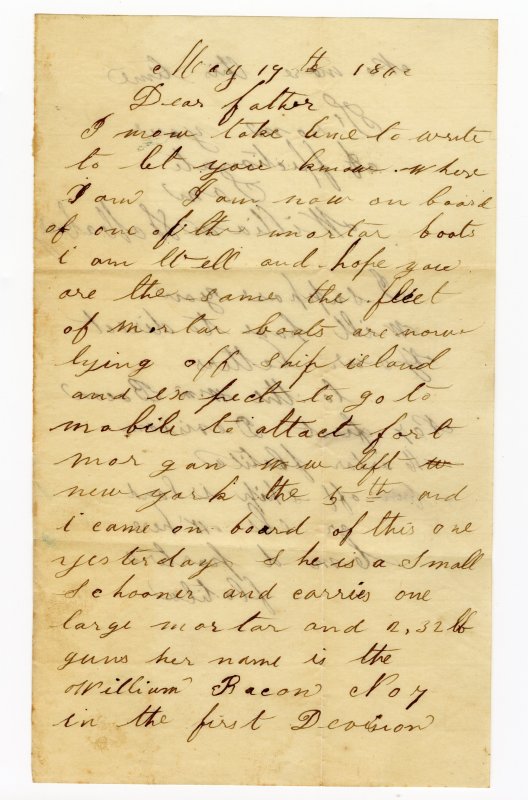 May 19th 186
Dear father
I now take time to write
to let you know where
I am I am now on board
of one of the mortar boats
i am Well and hope you
are the same the fleet
of mortar boats are now
lying off Ship island
and expect to go to
mobile to attact fort
mor gan we left
new york the 5th and
i came on board of this one
yesterday She is a Small
Schooner and carries one
large mortar and 2, 32 lb
guns her name is the
William Bacon No 7
in the first Devision